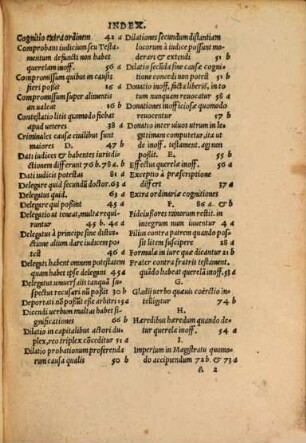 INDEX.
Cognitio extraordinem 42 a
Comprobans iudicium seu Testa
mentum defuncti non habet
querelam inoff. 56 a
Compromissum quibus in causis
fieri possit 16 a
Compromissum super alimentis
an ualeat 66 b
Contestatio litis quomodo fiebat
apud ueteres 38 a
Criminales causæ ciuilibus sunt
maiores D. 47 b
Dati iudices & habentes iurisdi
ctionem differunt 76 b. 78 a. b
Dati iudicis potestas 81 a
Delegare qui secundū doctor. 63 a
Delegatus quis. 63 a
Delegare qui possint 45 a
Delegatio ut ualeat, multa requi
runtur 45 b. 46 a
Delegatus à principe siue distin
ctione alium dare iudicem po
test 46 a
Delegati habent omnem potestatem
quam habet ipse delegans 45 a
Delegatus uniuersalis tanquā su
spectus recusari nō possit 30 b
Deportati nō possūt esse arbitri 54 a
Dicendi uerbum multas habet si
gnificationes 66 b
Dilatio in capitalibus acteri du
plex, reo triplex cōceditur 51 a
Dilatio probationum proferenda
rum causa qualis 50 b
Dilationes secundum distantiam
locorum à iudice possunt mo
derari & extendi 51 b
Dilatio secūda sine causæ cogni
tione concedi non potest 51 b
Donatio inoff. facta liberis, in to
tum nunquam reuocatur 58 a
Donationes inofficiosæ quomodo
reuocentur 57 b
Donatio inter uiuos utrum in le
gitimam computetur, ita ut
de inoff. testament. agi non
possit. E. 55 b
Effectus querelæ inoff. 54 a
Exceptio à præscriptione
differt 37 a
Extra ordinariæ cognitiones
F. 86 a. & b
Fideiussores minorum restit. in
integrum num iuuentur 4 a
Filius contra patrem quando pos
sit litem suscipere 18 a
Formula in iure quæ dicantur 21 b
Frater contra fratris testament.
quādo habeat querelā inoff. 53 a
G.
Gladij uerbo quæuis coërctio in
telligitur 74 b
H.
Hæredibus hæredum quando de
tur querela inoff. 54 a
I.
Imperium in Magistratu quomo
do accipiendum 72 b. & 73 a
& 2